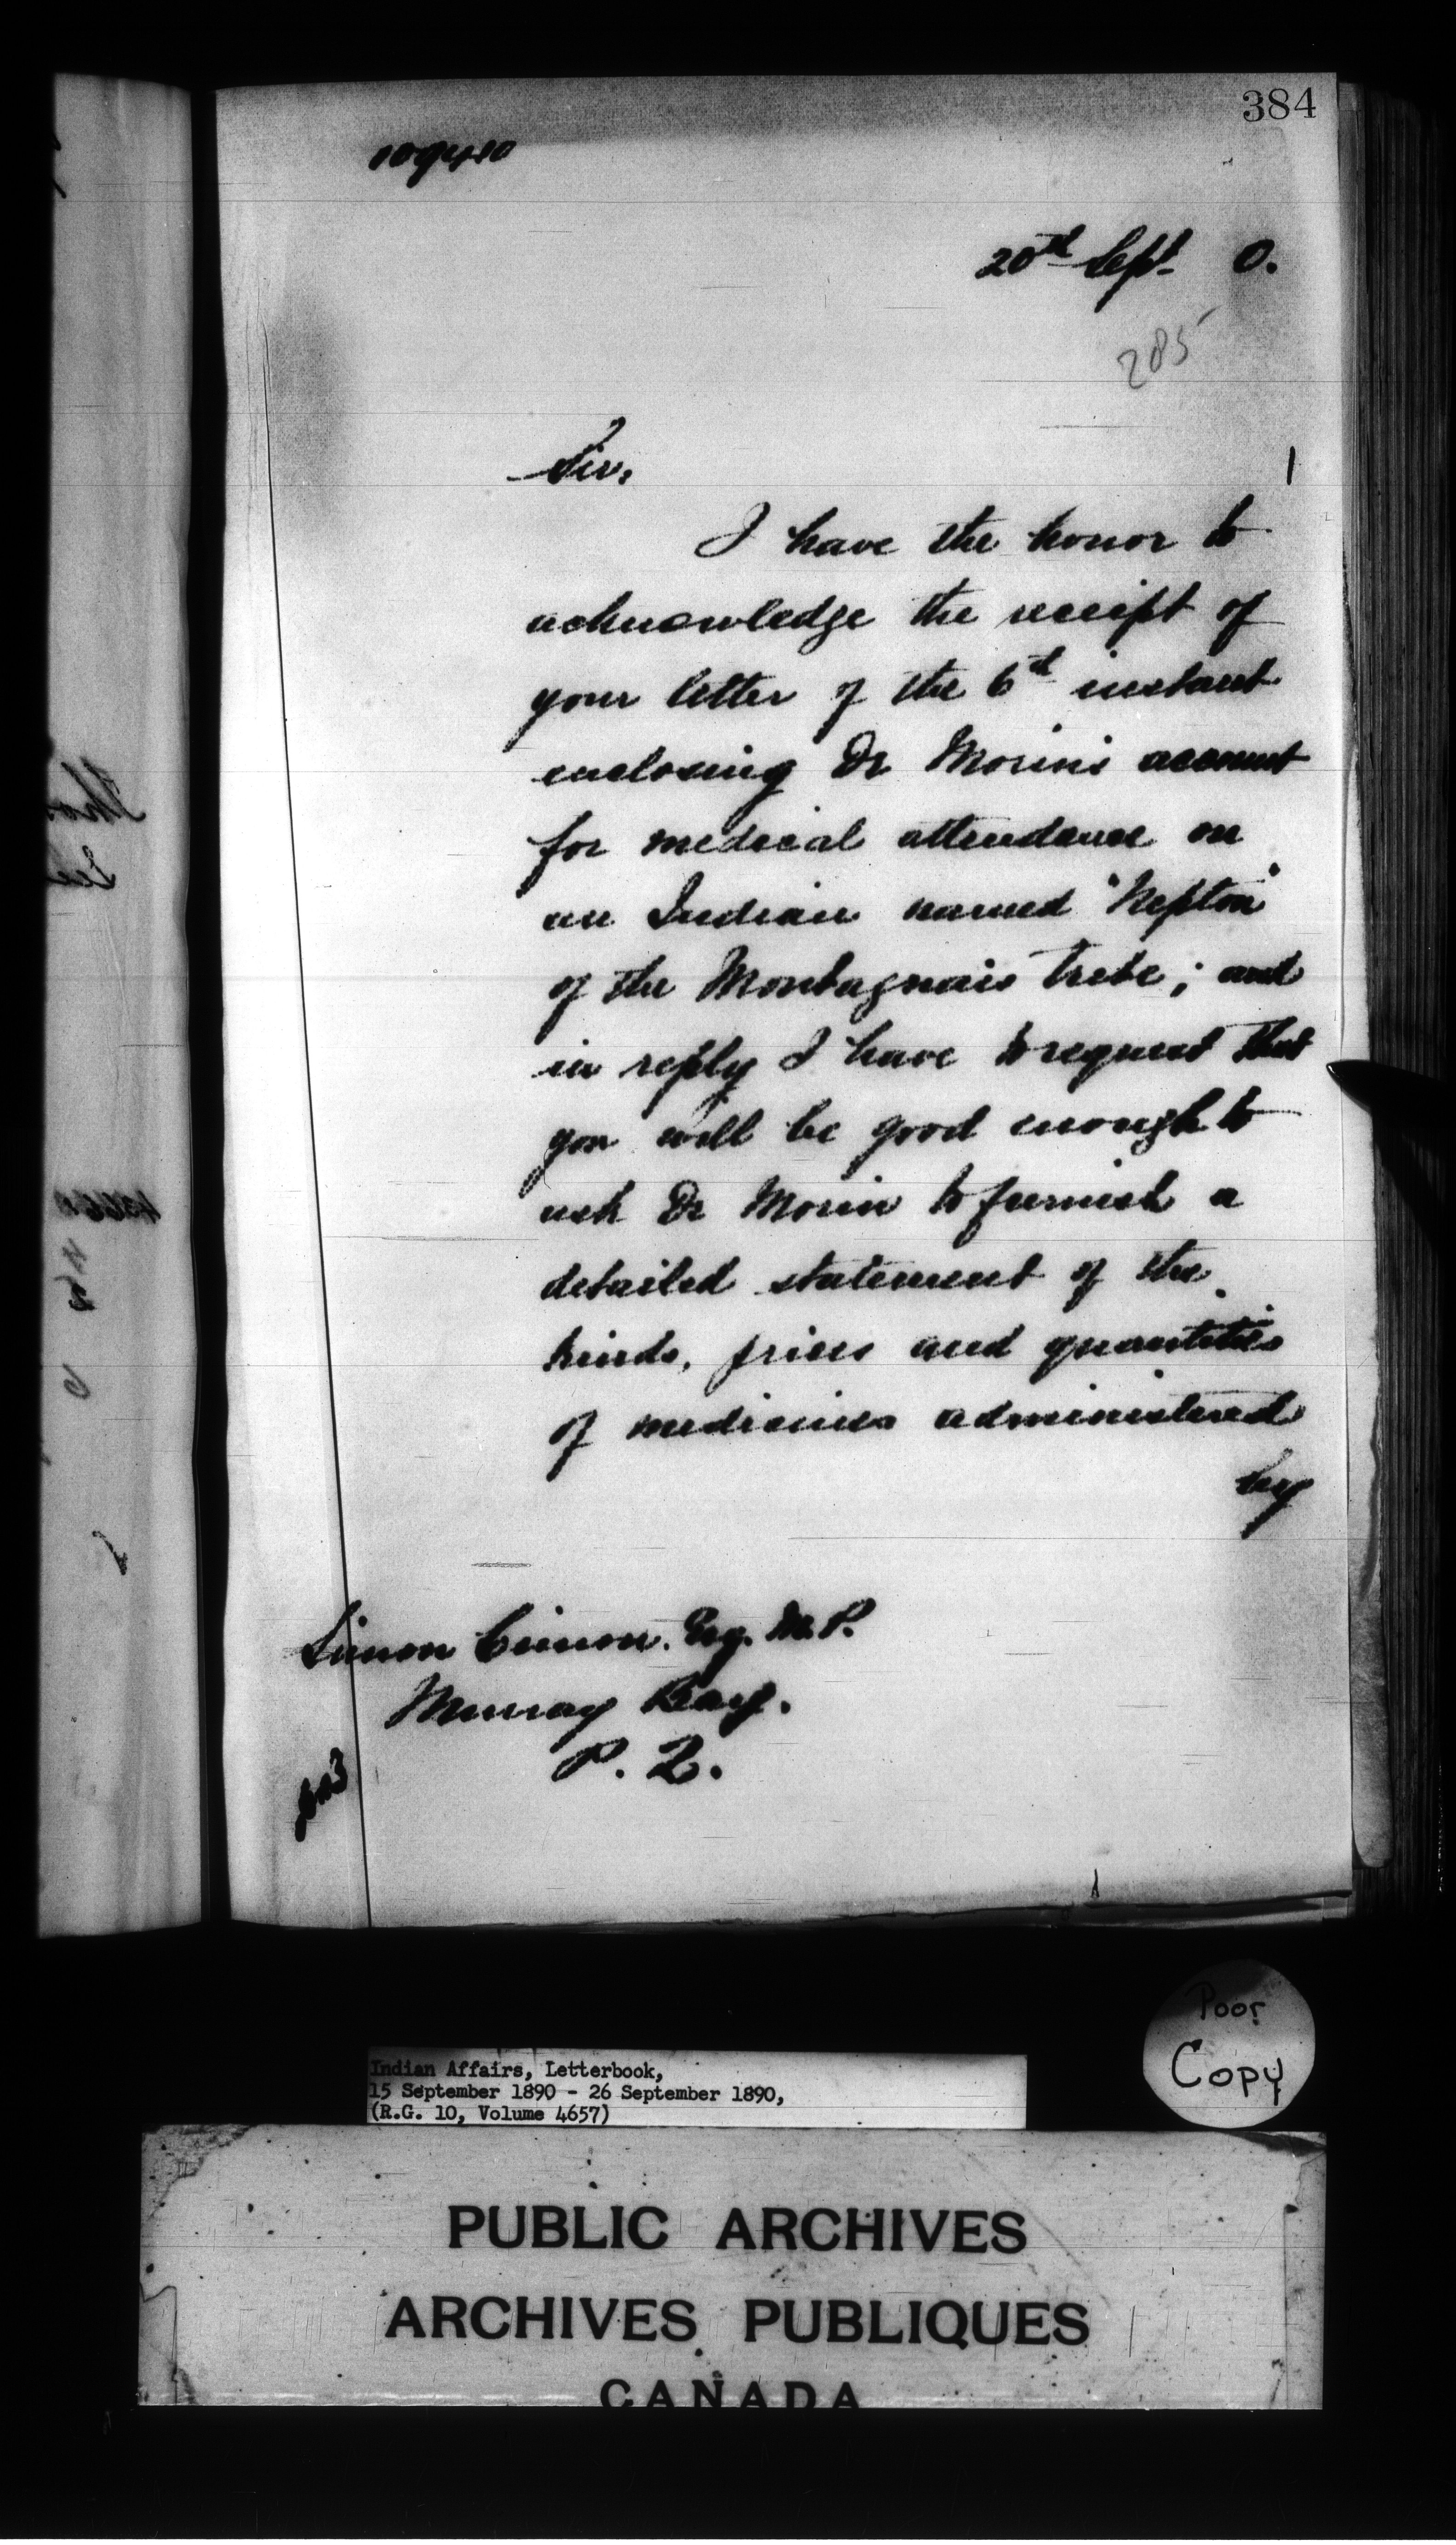 384
20th Sept. 0.
285
Sir,
I have the honor to
acknowledge the receipt of
your letter of the 6th instant
enclosing Dr Morin's account
for medical attendance on
an Indian named "Nepton"
of the Montagnais tribe; and
in reply I have to request that
you will be good enough to
ask Dr Morin to furnish a
detailed statement of the
kinds, prices and quantities
of medicines administered
by
Simon Cimon. Esq. M.P.
Murray Bay.
P. Q.
Poor
Copy
Indian Affairs, Letterbook,
15 September 1890 - 26 September 1890,
(R.G. 10, Volume 4657)
PUBLIC ARCHIVES
ARCHIVES PUBLIQUES
CANADA